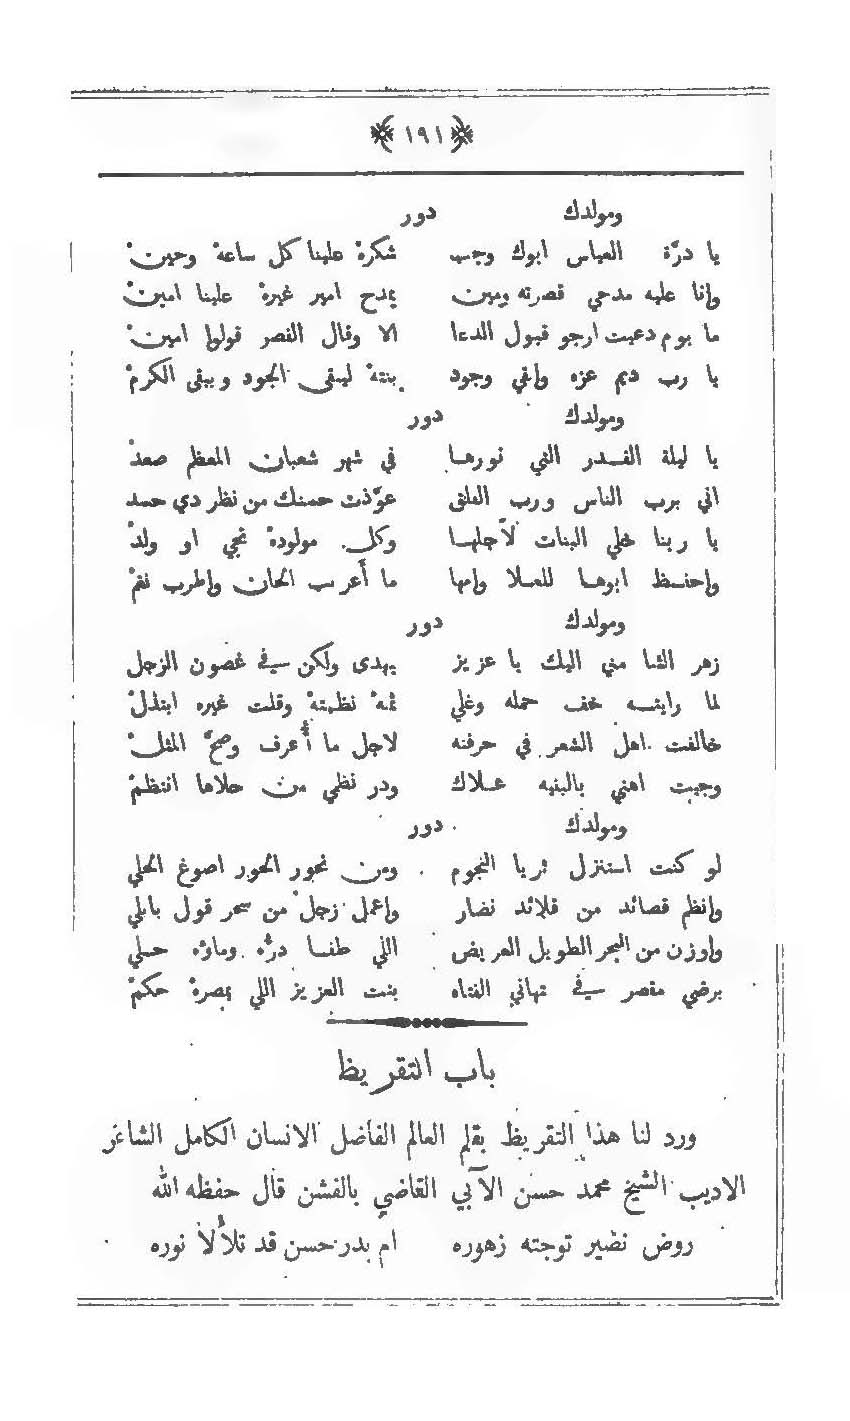 ﴿١٩١﴾
ومولدك دور
يا درّة العباس ابوك وجب شكرهْ علينا كل ساعهْ وحينْ
وانا عليه مدحي قصرته ومين يمدح امير غيرهْ علينا امينْ
ما يوم دعيت ارجو قبول الدعا الا وقال القصر قولوا امينْ
يا رب ديم عزه وابقي وجود بنتهْ ليبقى الجود ويبقى الكرمْ
ومولدك دور
يا ليلة القدر التي نورها في شهر شعبان المعظم صعدْ
اني برب الناس ورب الفلق عوّذت حسنك من نظر دي حسد
يا ربنا خلي البنات لأجلها وكل مولودهْ تجي او ولدْ
واحفظ ابوها للعلا وامها ما أعرب الحان واطرب نغمْ
ومولدك دور
زهر الثنا مني اليك يا عزيز يهدى ولكن في غصون الزجل
لما رايته خف حمله وغلي ثمنهْ نظمتهْ وقلت غيره ابتذلْ
خالفت اهل الشعر في حرفته لاجل ما أُعرف وصحّ المثلْ
وجيت اهني بالبنيه علاك ودر نظمي من حلاها انتظمْ
ومولدك دور
لو كنت استنزل ثريا النجوم ومن نحور الحور اصوغ الحلي
وانظم قصائد من قلائد نضار واعمل زجلْ من سحر قول بابلي
واوزن من البحر الطويل العريض اللي طفا درُّه وماؤه حلي
برضي مقصر في تهاني الفتاه بنت العزيز اللي بمصرهْ حكمْ
باب التقريظ
ورد لنا هذا التقريظ بقلم العالم الفاضل الانسان الكامل الشاعر
الاديب الشيخ محمد حسن الآبي القاضي بالفشن قال حفظه الله
روض نضير توجته زهوره ام بدر حسن قد تلألأ نوره